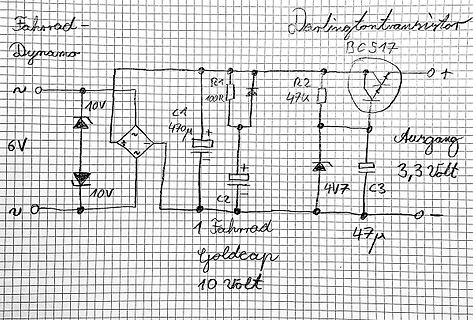 Fahrrad-
Dynamo
Darlingtontransistor
BC517
~
10V
6V
10V
~
C1
470µ
+
R1
100R
+
C2
R2
47k
4V7
C3
47µ
+
Ausgang
3,3 Volt
-
1 Fahrrad
Goldcap
10 Volt